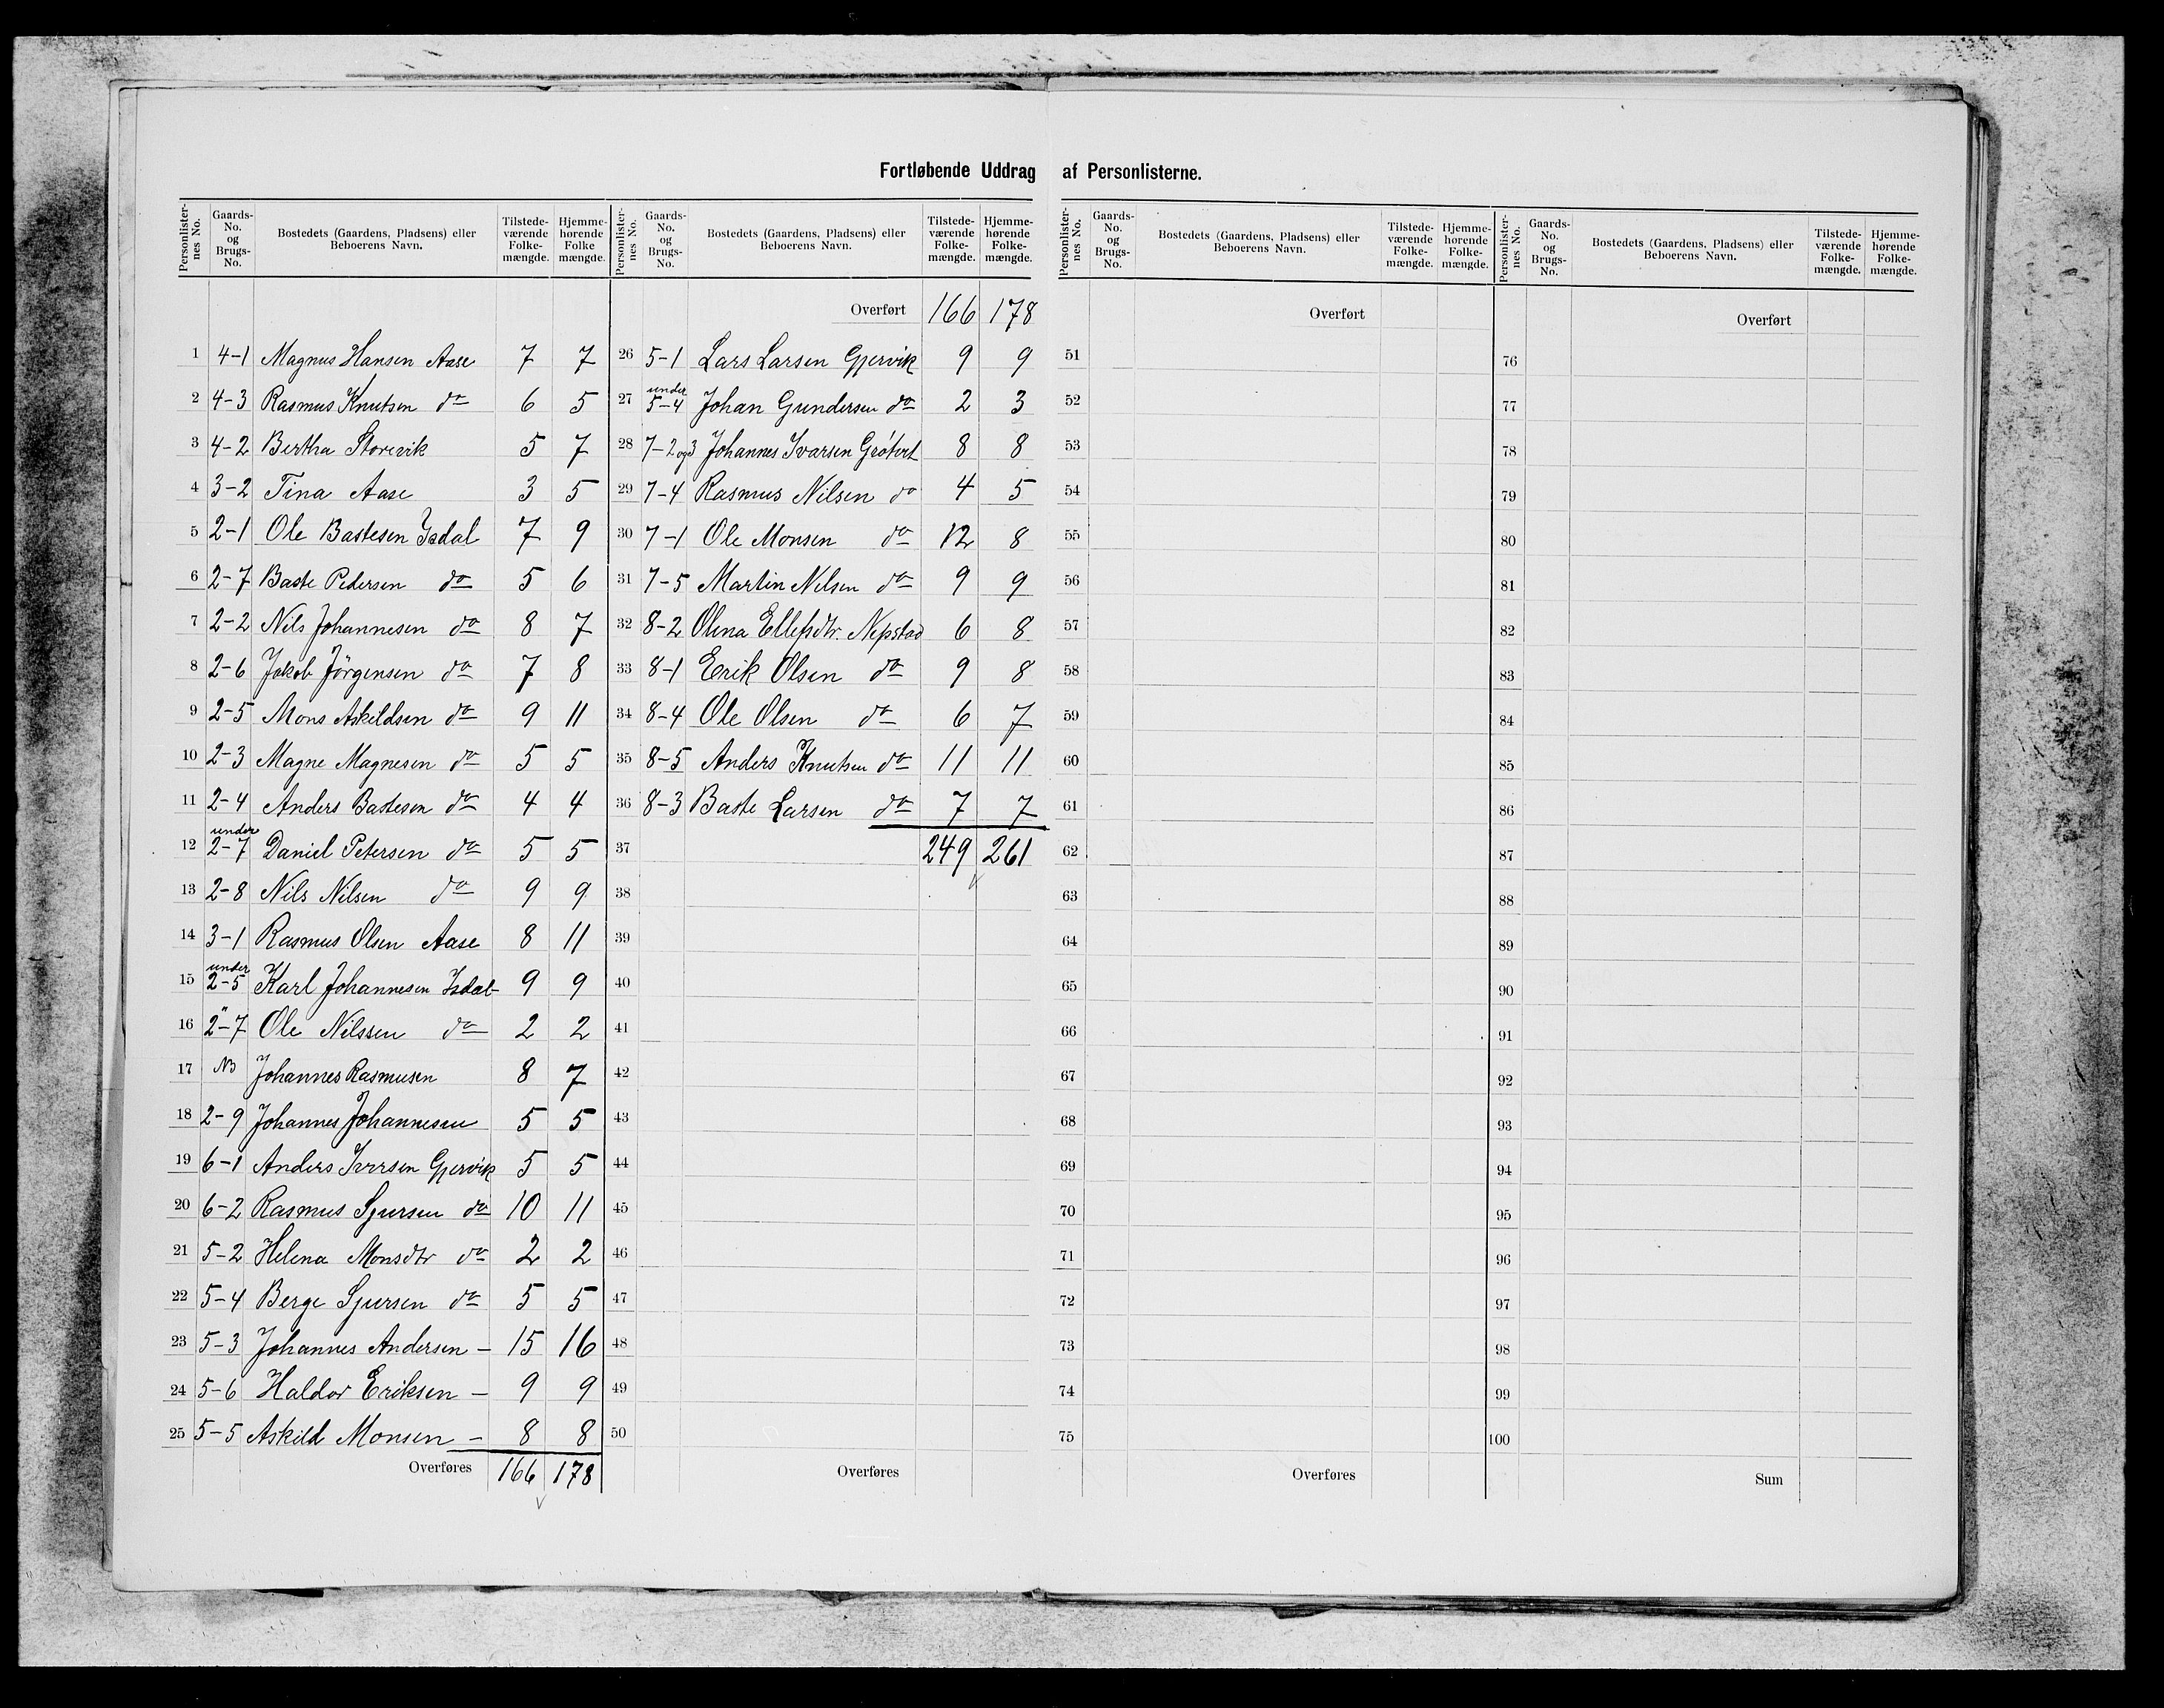 Fortløbende Uddrag af Personlisterne.
Personlisternes No. Gaards-No. og Brugs-No. Bostedets (Gaardens, Pladsens) eller Beboerens Navn. Tilstedeværende Folkemængde. Hjemmehørende Folkemængde.
1 4-1 Magnus Hansen Aase 7 7
2 4-3 Rasmus Knutsen do 6 5
3 4-2 Bertha Storevik 5 7
4 3-2 Tina Aase 3 5
5 2-1 Ole Bastesen Isdal 7 9
6 2-7 Baste Pedersen do 5 6
7 2-2 Nils Johannesen do 8 7
8 2-6 Jakob Jörgensen do 7 8
9 2-5 Mons Askildsen do 9 11
10 2-3 Magne Magnesen do 5 5
11 2-4 Anders Bastesen do 4 4
12 under 2-7 Daniel Petersen do 5 5
13 2-8 Nils Nilsen do 9 9
14 3-1 Rasmus Olsen Aase 8 11
15 under 2-5 Karl Johannesen Isdal 9 9
16 " 2-7 Ole Nilssen do 2 2
17 NB Johannes Rasmusen 8 7
18 2-9 Johannes Johannesen 5 5
19 6-1 Anders Iversen Gjervik 5 5
20 6-2 Rasmus Sjursen do 10 11
21 5-2 Helena Monsdtr do 2 2
22 5-4 Berge Sjursen do 5 5
23 5-3 Johannes Andersen - 15 16
24 5-6 Haldor Eriksen - 9 9
25 5-5 Askild Monsen - 8 8
Overføres 166 178
Personlisternes No. Gaards-No. og Brugs-No. Bostedets (Gaardens, Pladsens) eller Beboerens Navn. Tilstedeværende Folkemængde. Hjemmehørende Folkemængde.
Overført 166 178
26 5-1 Lars Larsen Gjervik 9 9
27 under 5-4 Johan Gundersen do 2 3
28 7-2 og 3 Johannes Ivarsen 8 8
29 7-4 Rasmus Nilsen do 4 5
30 7-1 Ole Monsen do 12 8
31 7-5 Martin Nilsen do 9 9
32 8-2 Olena Ellefsdtr. Nepstad 6 8
33 8-1 Erik Olsen do 9 8
34 8-4 Ole Olsen do 6 7
35 8-5 Anders Knutsen do 11 11
36 8-3 Baste Larsen do 7 7
37 249 261
38
39
40
41
42
43
44
45
46
47
48
49
50
Overføres
Personlisternes No. Gaards-No. og Brugs-No. Bostedets (Gaardens, Pladsens) eller Beboerens Navn. Tilstedeværende Folkemængde. Hjemmehørende Folkemængde.
Overført
51
52
53
54
55
56
57
58
59
60
61
62
63
64
65
66
67
68
69
70
71
72
73
74
75
Overføres
Personlisternes No. Gaards-No. og Brugs-No. Bostedets (Gaardens, Pladsens) eller Beboerens Navn. Tilstedeværende Folkemængde. Hjemmehørende Folkemængde.
Overført
76
77
78
79
80
81
82
83
84
85
86
87
88
89
90
91
92
93
94
95
96
97
98
99
100
Sum